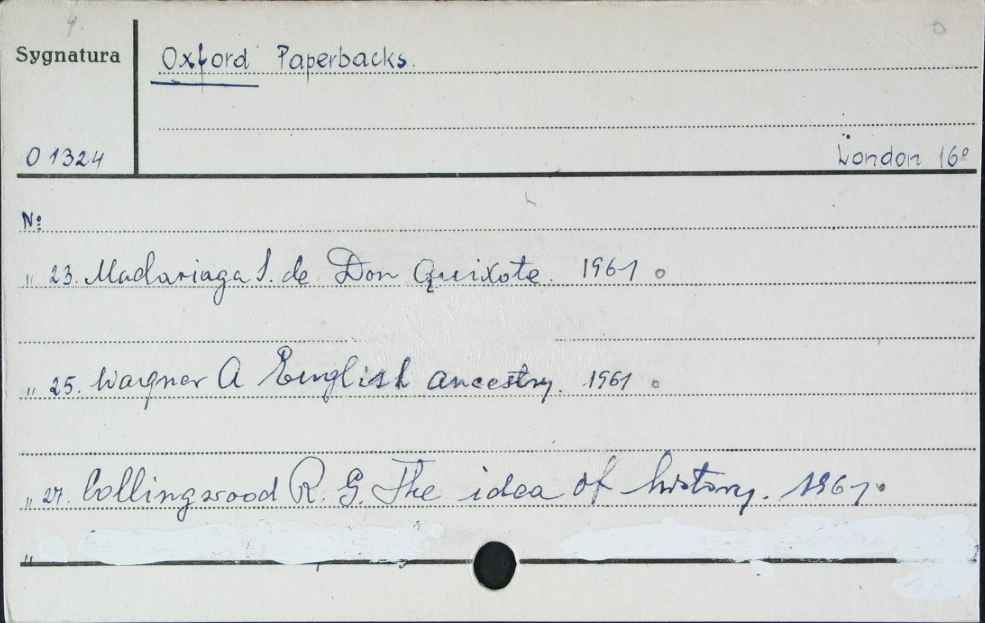 Sygnatura
Oxford Paperbacks.
O 1324
London 16º
Nº
„ 23. Madariaga S. de Don Quixote. 1961 o
„ 25. Wagner A English ancestry. 1961 o
„ 27. Collingwood R. G. The idea of history. 1961 o
„